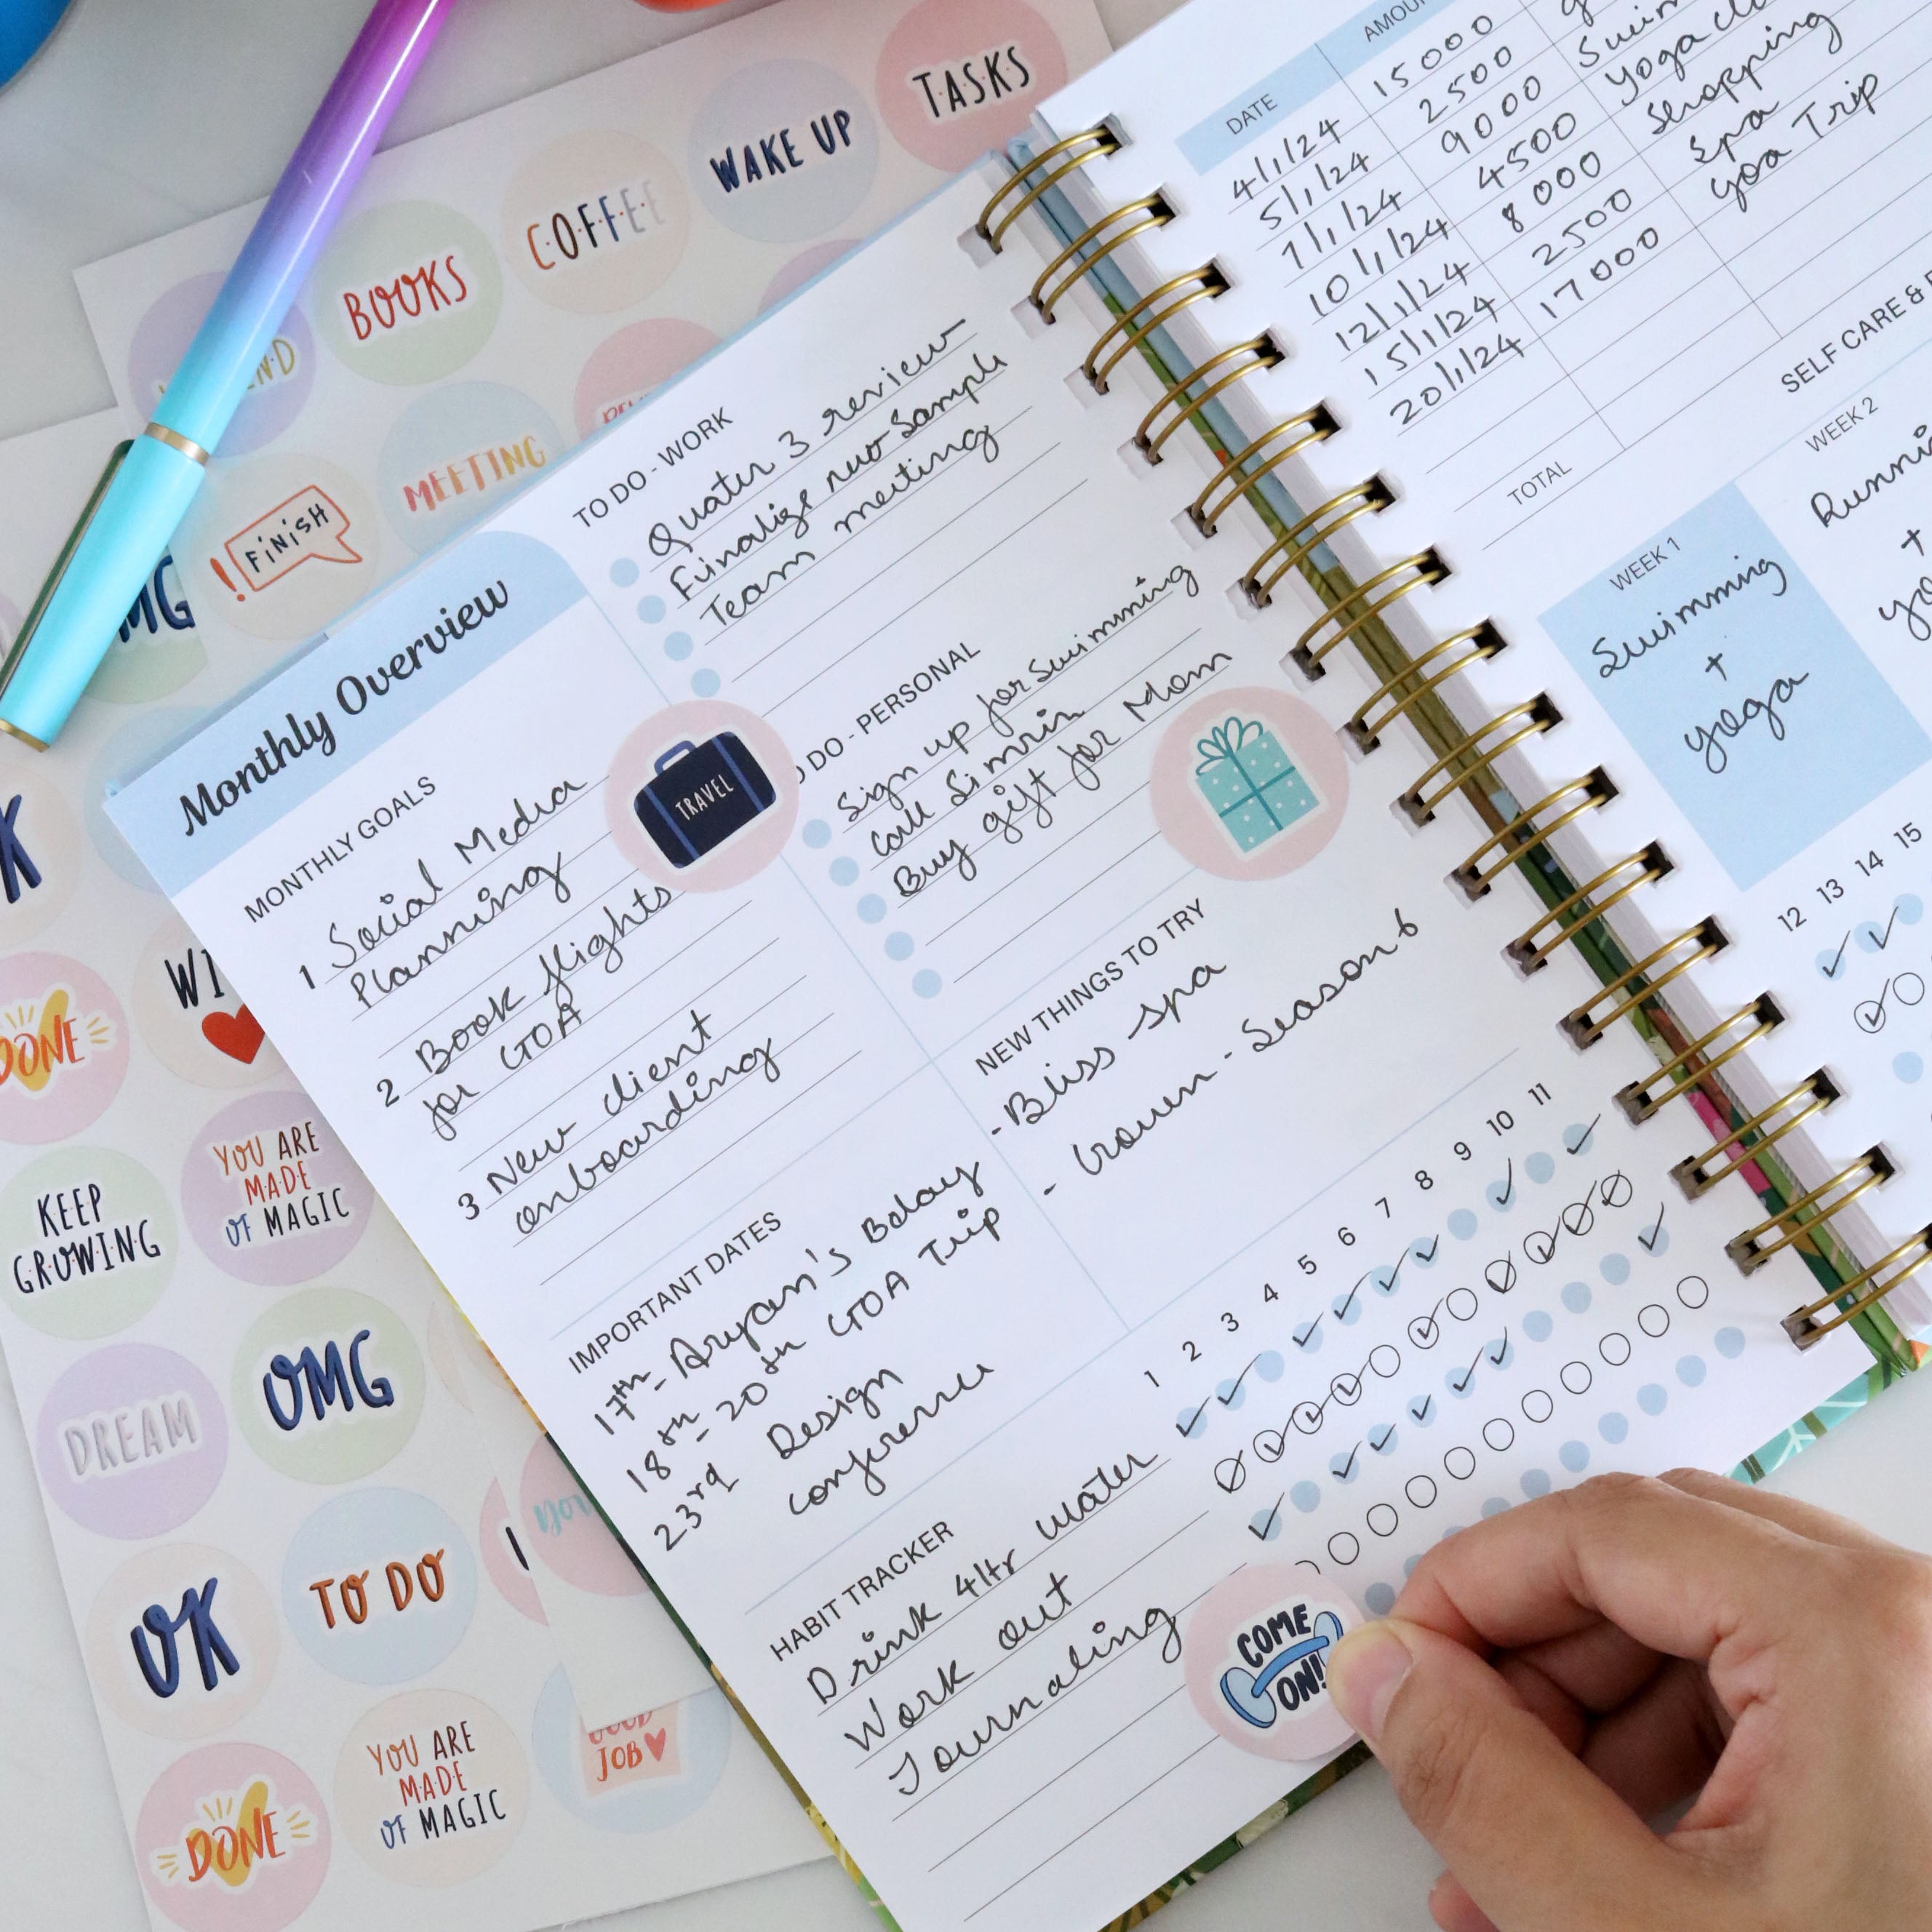 TASKS
WAKE UP
COFFEE
BOOKS
MEETING
! FINISH
MG
K
DONE
WI
YOU ARE
MADE
OF MAGIC
KEEP
GROWING
OMG
DREAM
TO DO
OK
YOU ARE
MADE
OF MAGIC
JOB
DONE
Monthly Overview
MONTHLY GOALS
1 Social Media
Planning
2 Book flights
for GOA
3 New client
onboarding
TRAVEL
TO DO - WORK
Quater 3 review
Finalise new sample
Team meeting
DO - PERSONAL
Sign up for Swimming
Call Simrin
Buy gift for Mom
NEW THINGS TO TRY
- Bliss spa
- Crown - Season 6
IMPORTANT DATES
17th - Aryan's Bday
18th - 20th GOA Trip
23rd Design
conference
HABIT TRACKER
1 2 3 4 5 6 7 8 9 10 11
Drink 4ltr water
Work out
Journaling
COME
ON!
DATE
4/1/24 15000
5/1/24 2500
7/1/24 9000
10/1/24 4500 Yoga
12/1/24 8000 Shopping
15/1/24 2500 Spa
20/1/24 17000 Goa Trip
TOTAL
SELF CARE &
WEEK 1
Swimming
+
yoga
WEEK 2
+
12 13 14 15